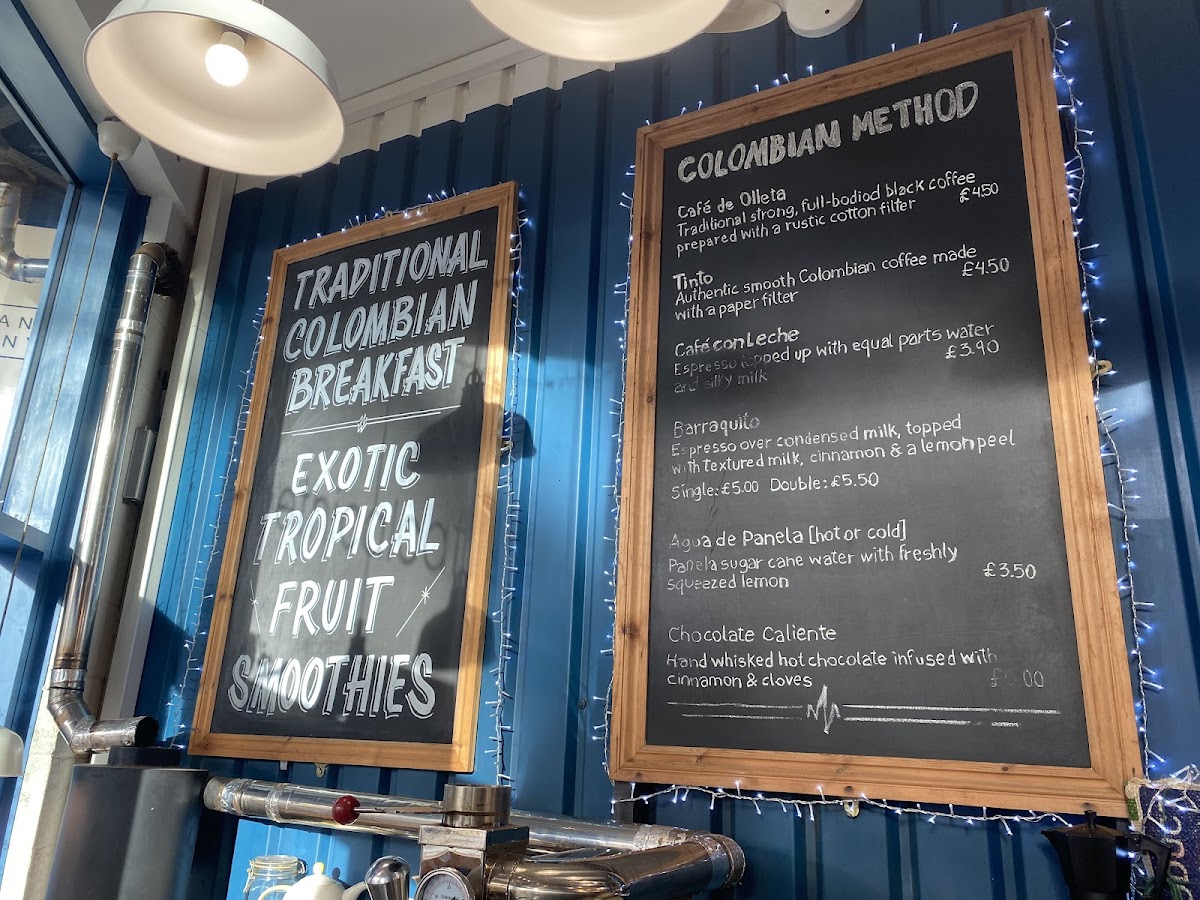 AN
NY
TRADITIONAL
COLOMBIAN
BREAKFAST
EXOTIC
TROPICAL
FRUIT
SMOOTHIES
COLOMBIAN METHOD
Café de Olleta
Traditional strong, full-bodiod black coffee
prepared with a rustic cotton filter £4.50
Tinto
Authentic smooth Colombian coffee made
with a paper filter £4.50
Café con Leche
Espresso topped up with equal parts water
and silky milk £3.90
Barraquito
Espresso over condensed milk, topped
with textured milk, cinnamon & a lemon peel
Single: £5.00 Double: £5.50
Agua de Panela [hot or cold]
Panela sugar cane water with freshly
squeezed lemon £3.50
Chocolate Caliente
Hand whisked hot chocolate infused with
cinnamon & cloves